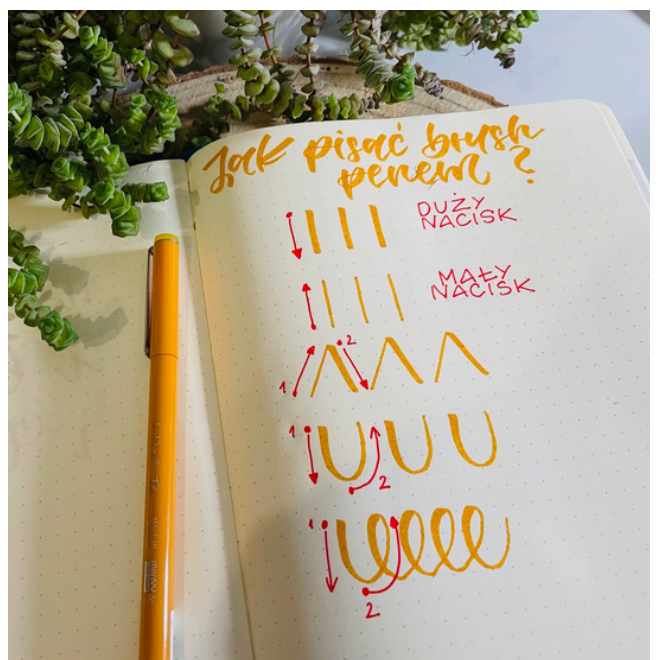 Jak pisać brush
penem ?
DUŻY
NACISK
MAŁY
NACISK
1 2
1 2
1 2